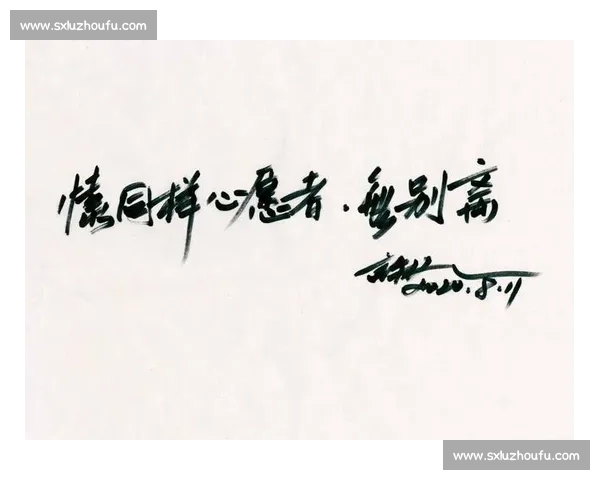 www.sxluzhoufu.com
懷同样心愿者．無别离
2020.8.11
www.sxluzhoufu.com